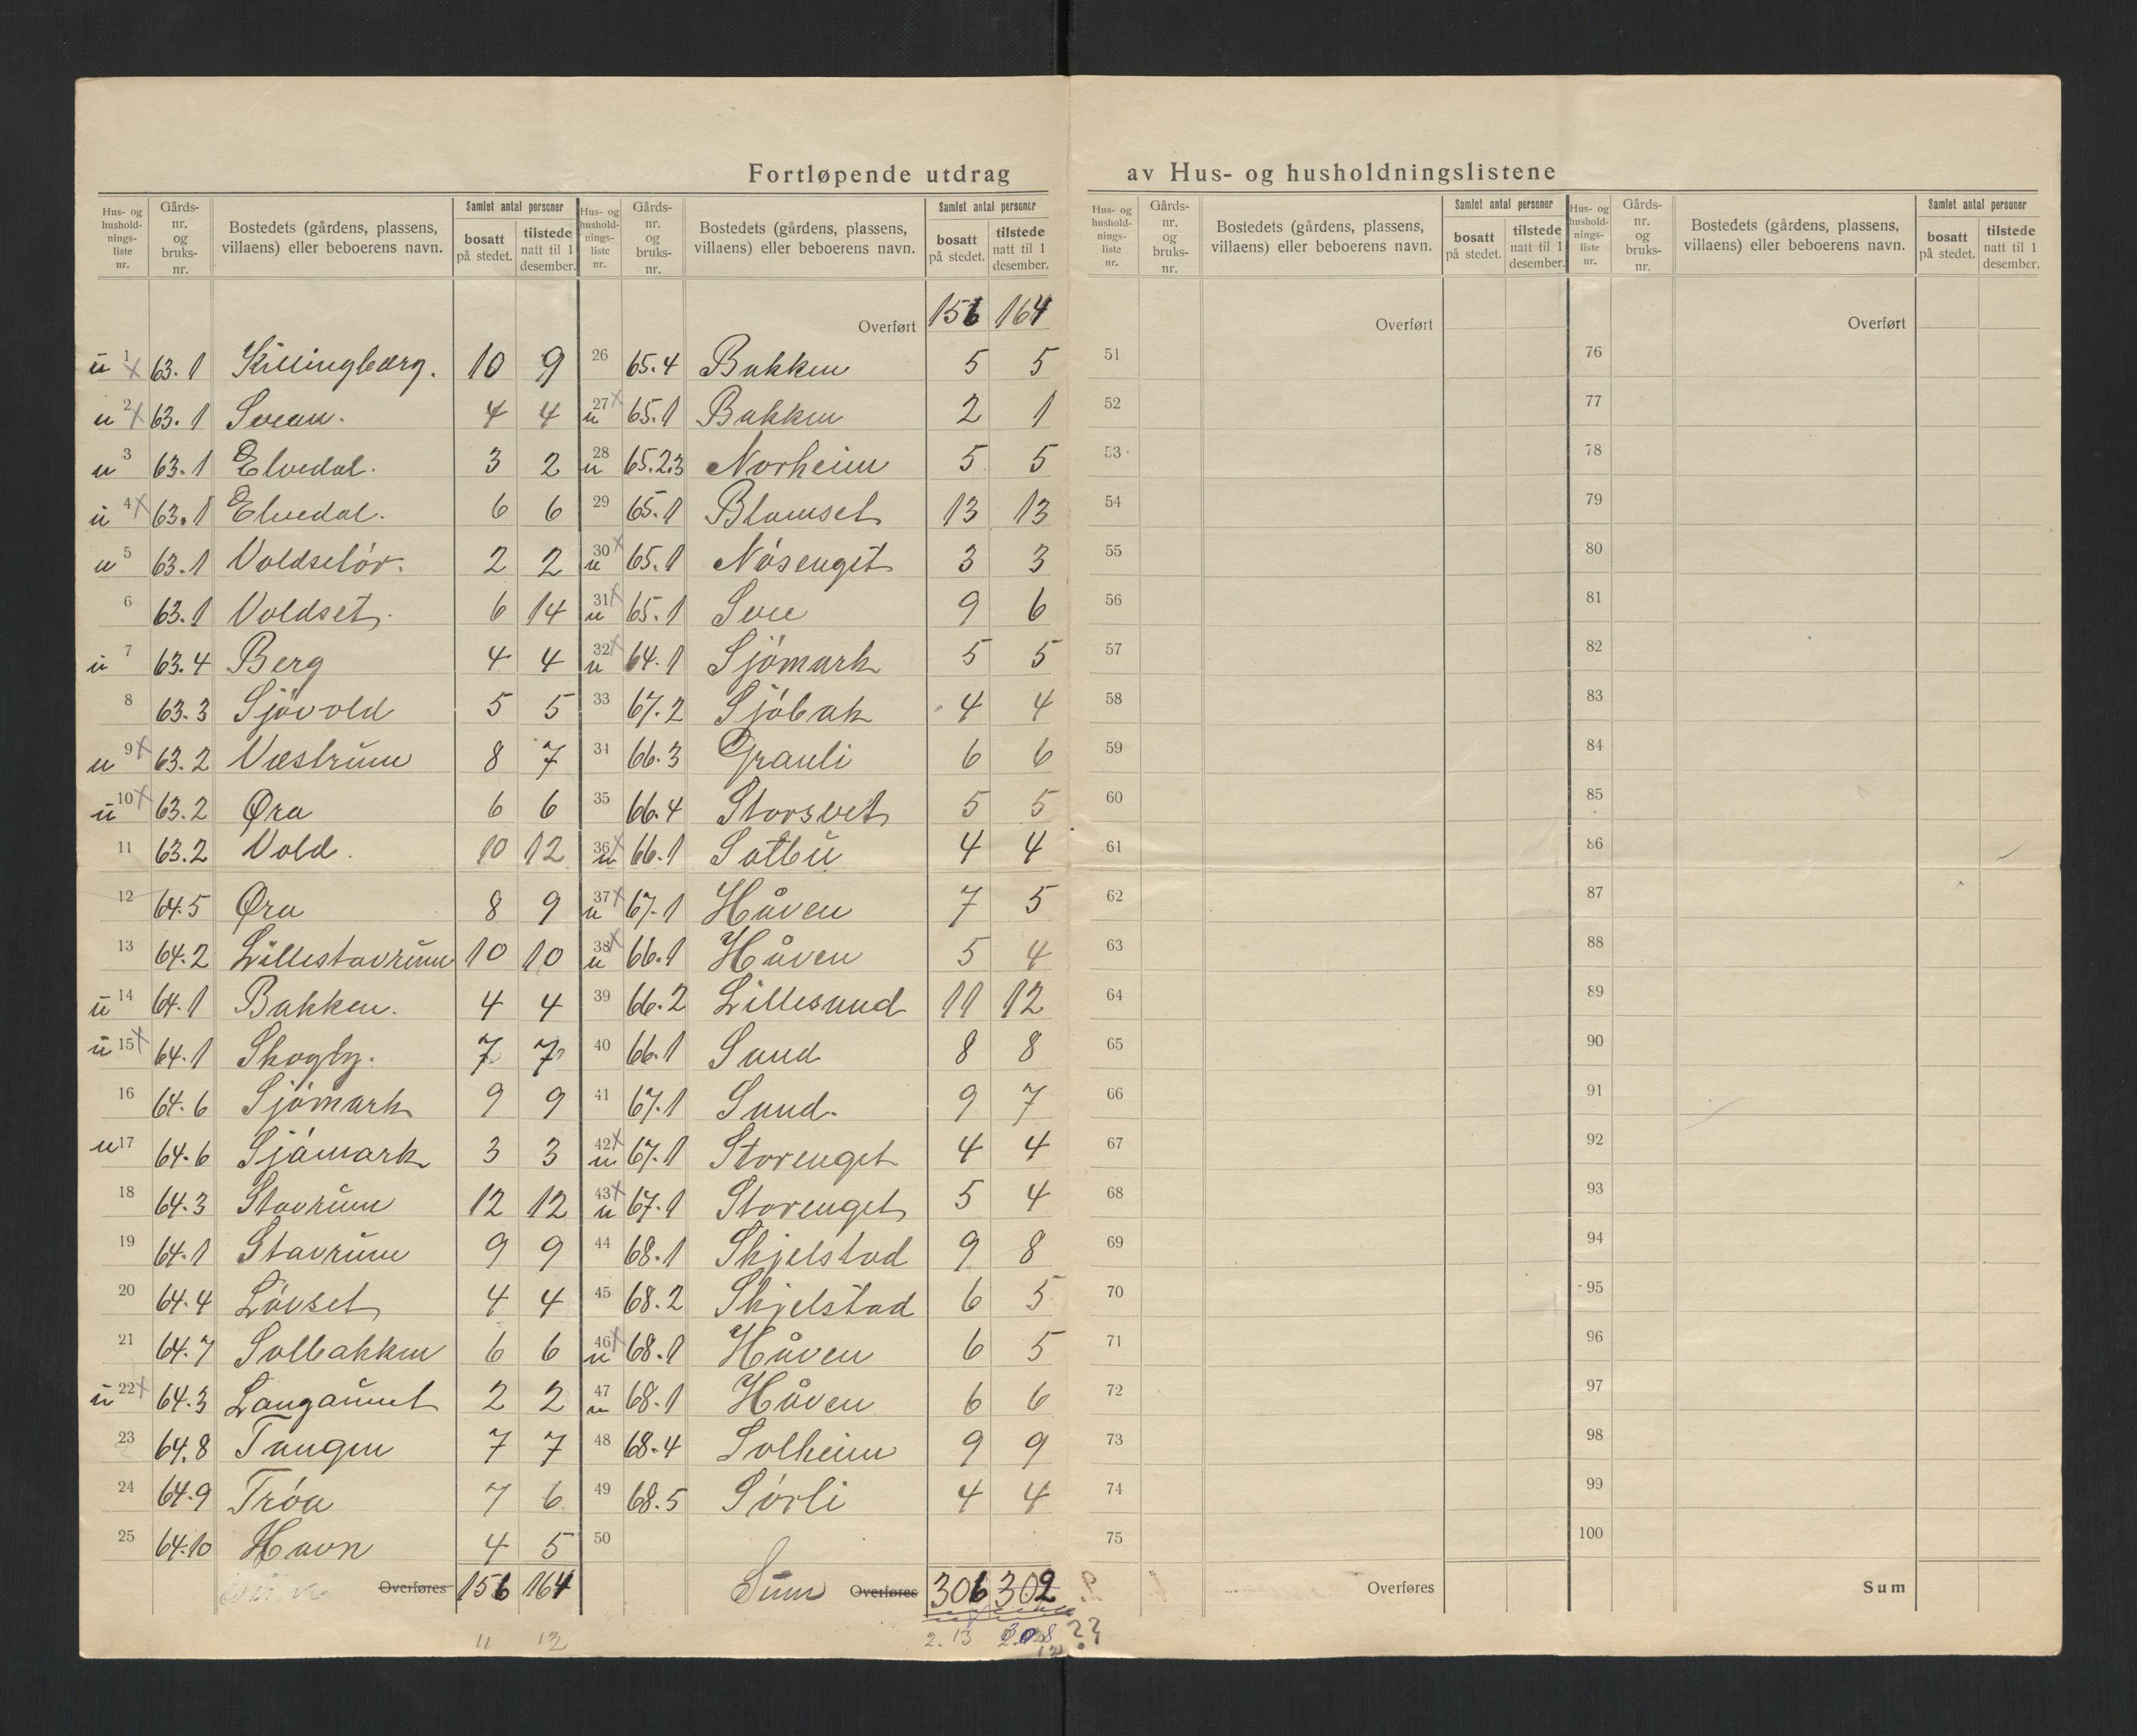 Fortløpende utdrag av Hus- og husholdningslistene
Hus- og hushold- nings- liste nr. Gårds- nr. og bruks- nr. Bostedets (gårdens, plassens, villaens) eller beboerens navn. Samlet antal personer bosatt på stedet. tilstede natt til 1 desember.
Hus- og hushold- nings- liste nr. Gårds- nr. og bruks- nr. Bostedets (gårdens, plassens, villaens) eller beboerens navn. Samlet antal personer bosatt på stedet. tilstede natt til 1 desember.
Hus- og hushold- nings- liste nr. Gårds- nr. og bruks- nr. Bostedets (gårdens, plassens, villaens) eller beboerens navn. Samlet antal personer bosatt på stedet. tilstede natt til 1 desember.
Hus- og hushold- nings- liste nr. Gårds- nr. og bruks- nr. Bostedets (gårdens, plassens, villaens) eller beboerens navn. Samlet antal personer bosatt på stedet. tilstede natt til 1 desember.
u 1 x 63.1 Killingberg. 10 9
u 2 x 63.1 Svean. 4 4
u 3 63.1 Elvedal. 3 2
u 4 x 63.1 Elvedal. 6 6
u 5 63.1 Voldselör. 2 2
6 63.1 Voldset. 6 14
u 7 63.4 Berg 4 4
8 63.3 Sjövold 5 5
u 9 x 63.2 Vestrum 8 7
u 10 x 63.2 Øra 6 6
11 63.2 Vold. 10 12
12 64.5 Øra 8 9
13 64.2 Lillestavrum 10 10
u 14 64.1 Bakken. 4 4
u 15 x 64.1 Skogly. 7 7
16 64.6 Sjömark 9 9
u 17 64.6 Sjömark 3 3
18 64.3 Stavrum 12 12
19 64.1 Stavrum 9 9
20 64.4 Lövset 4 4
21 64.7 Solbakken 6 6
u 22 x 64.3 Langaunet 2 2
23 64.8 Tangen 7 7
24 64.9 Tröa 7 6
25 64.10 Havn 4 5
Overføres 156 164
11 12
Overført 156 164
26 65.4 Bakken 5 5
27 x u 65.1 Bakken 2 1
28 u 65.2.3 Norheim 5 5
29 65.1 Blomset 13 13
30 x u 65.1 Nösenget 3 3
31 x u 65.1 Sve 9 6
32 x u 64.1 Sjömark 5 5
33 67.2 Sjöbak 4 4
34 66.3 Granli 6 6
35 66.4 Storsvet 5 5
36 x u 66.1 Satbu 4 4
37 x u 67.1 Håven 7 5
38 x u 66.1 Håven 5 4
39 66.2 Lillesund 11 12
40 66.1 Sund 8 8
41 67.1 Sund. 9 7
42 x u 67.1 Storenget 4 4
43 x u 67.1 Storenget 5 4
44 68.1 Skjelstad 9 8
45 68.2 Skjelstad 6 5
46 x u 68.1 Håven 6 5
47 u 68.1 Håven 6 6
48 68.4 Solheim 9 9
49 68.5 Sörli 4 4
50
Sum Overføres 306 302
2. 13
Overført
51
52
53
54
55
56
57
58
59
60
61
62
63
64
65
66
67
68
69
70
71
72
73
74
75
Overføres
Overført
76
77
78
79
80
81
82
83
84
85
86
87
88
89
90
91
92
93
94
95
96
97
98
99
100
Sum